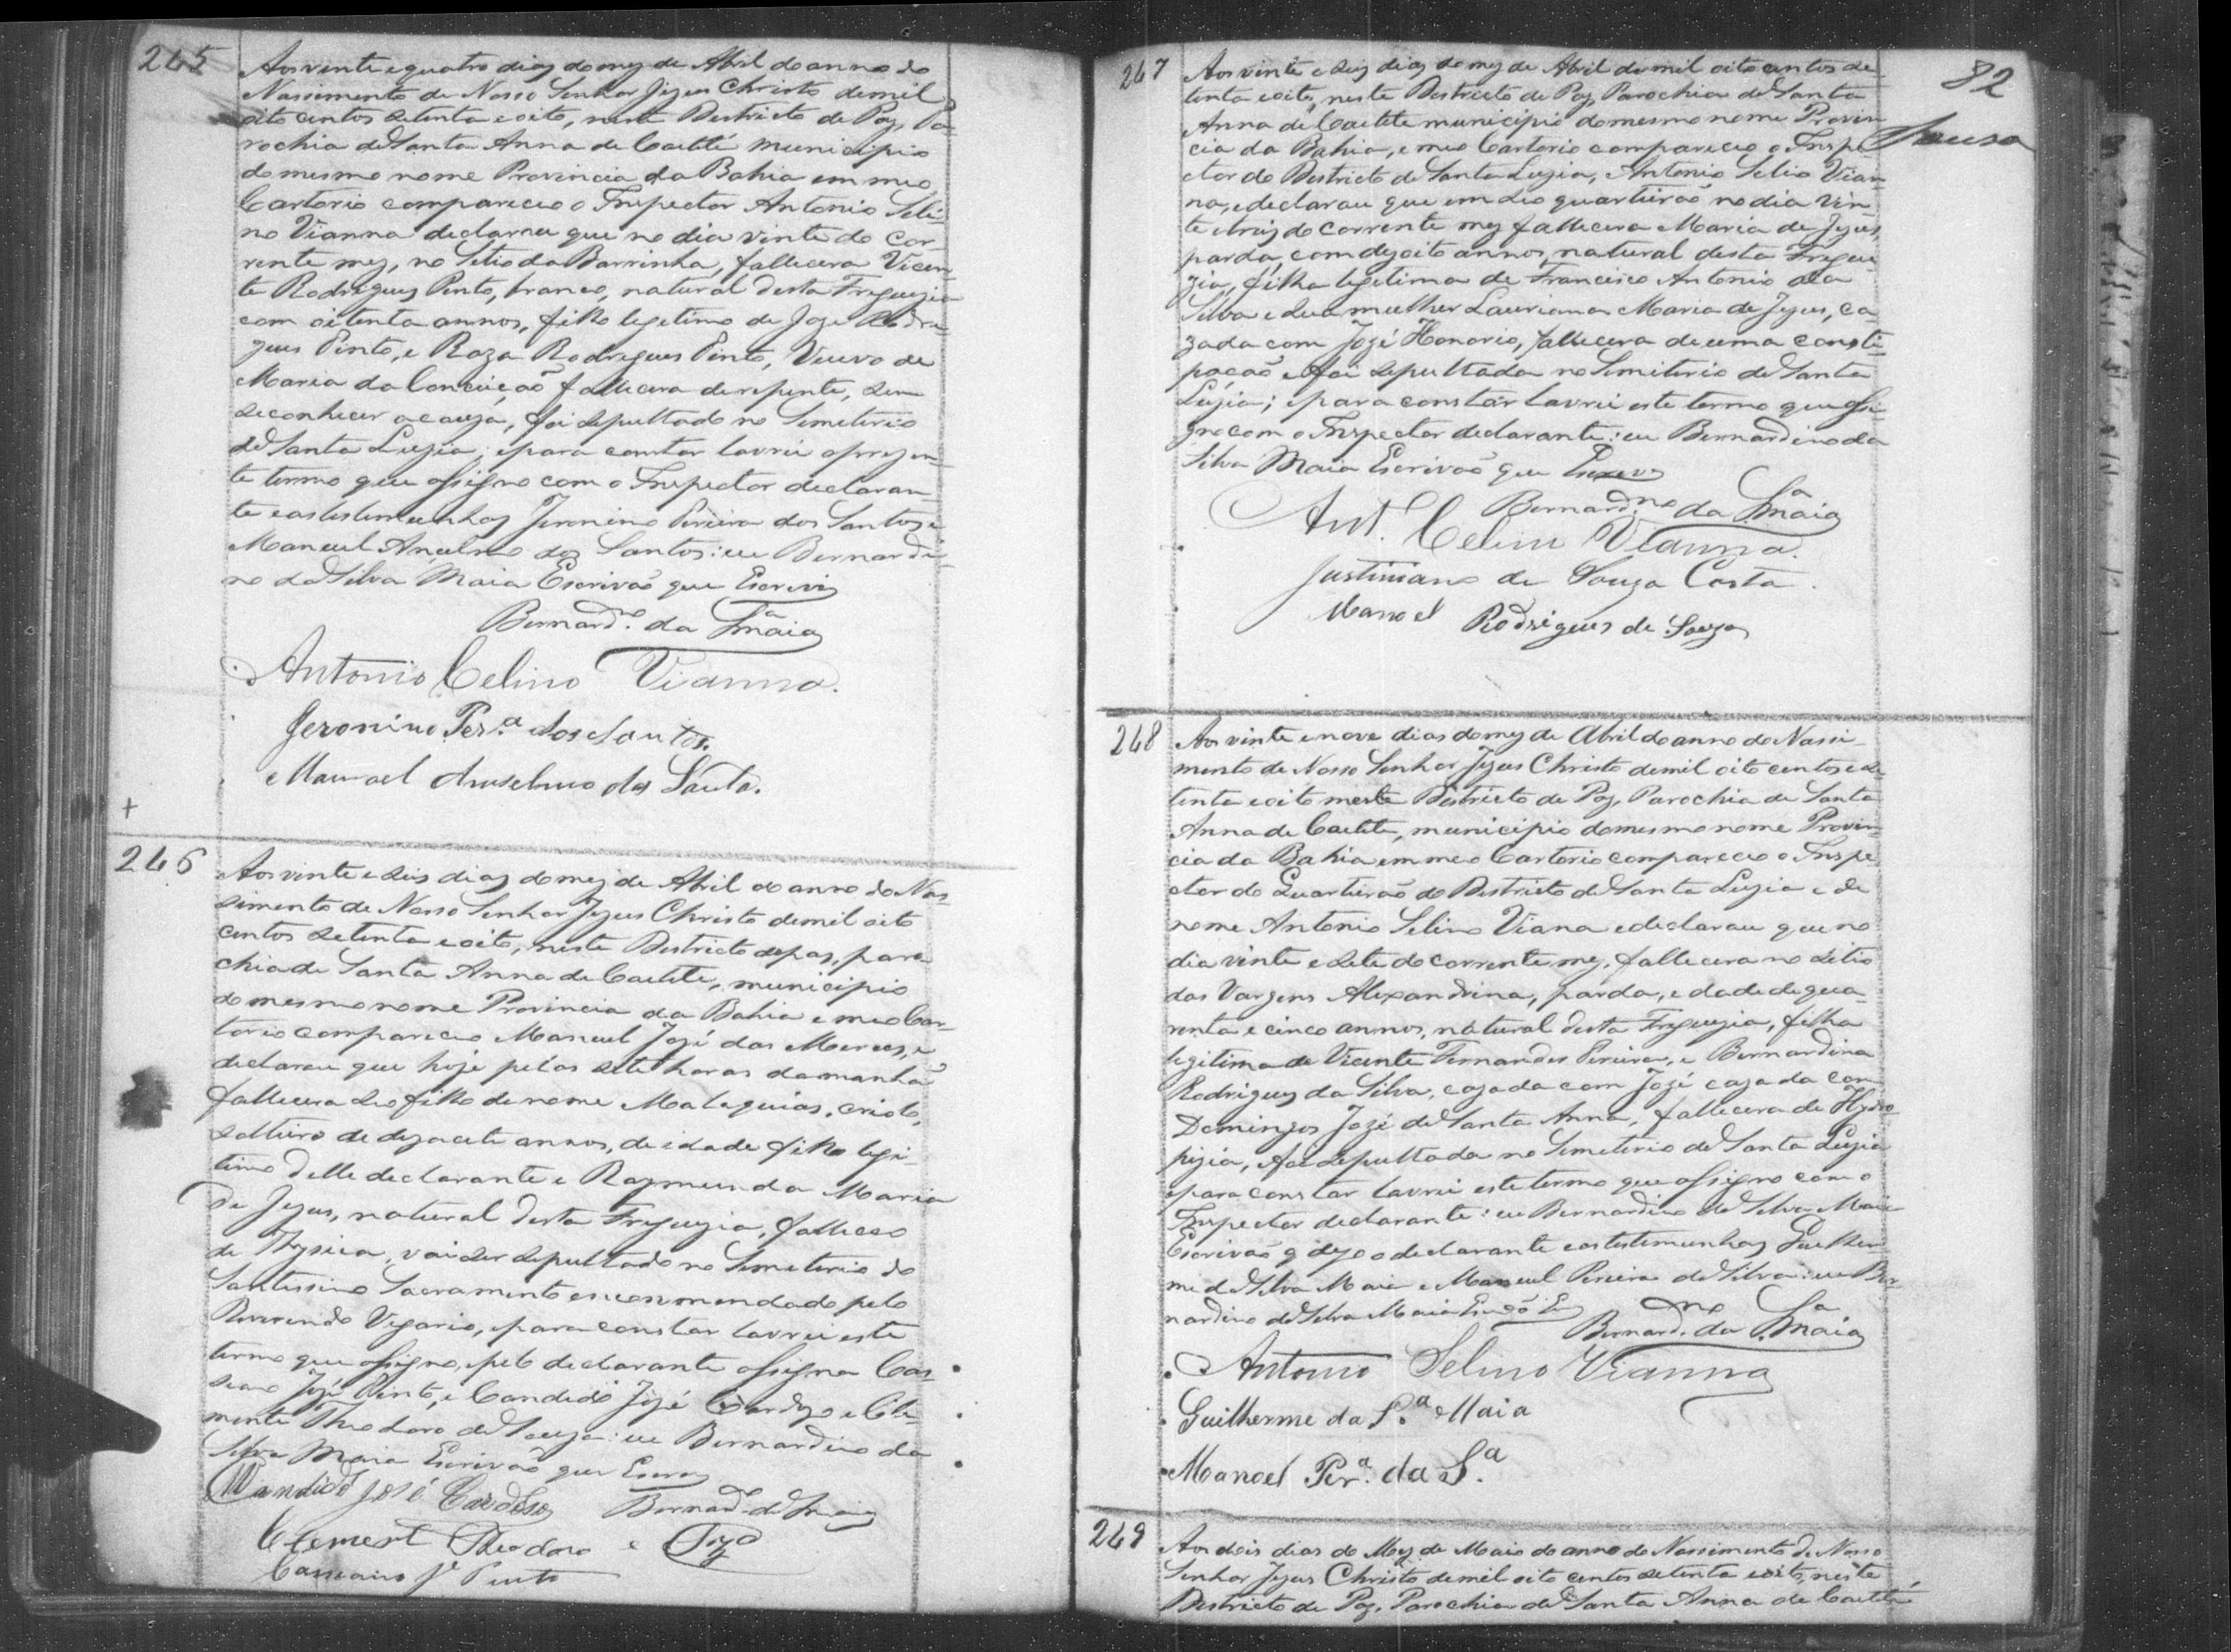 245
Aos vente e quatro dias do mez de Abril do anno do
Nassimento de Nosso Senhor Jezus Christo de mil
oito centos setenta e oito, neste Destricto de Paz, Pa-
rochia de Santa Anna de Caetité municipio
do mesmo nome Provincia da Bahia em meo
Cartorio compareceo o Inspector Antonio Seli-
no Vianna declarou que no dia vinte do cor-
rente mez, no Sitio da Barrinha, fallecera Vicen-
te Rodrigues Pinto, branco, natural desta Freguezia
com oitenta annos, filho legitimo de Joze Rodri-
gues Pinto, e Roza Rodrigues Pinto, Viuvo de
Maria da Conceição fallecera de repente, sem
se conhecer a cauza, foi sepultado no Semeterio
de Santa Luzia; e para constar lavrei o prezen-
te termo que assigno com o Inspector declaran-
te e as testemunhas Jeronimo Pereira dos Santos e
Manuel Anselmo dos Santos: eu Bernardi-
no da Silva Maia Escrivão que Escrevi
Bernard.no da S.a Maia
Antonio Celino Vianna.
Jeronimo Per.a dos Santos.
Manoel Anselmo dos Santos.
+
246
Aos vinte e seis dias do mez de Abril do anno do Nas-
simento de Nosso Senhor Jezus Christo de mil oito
centos setenta e oito, neste Destricto de paz, paro-
chia de Santa Anna de Caetite, municipio
do mesmo nome Provincia da Bahia e meo Car-
torio compareceo Manuel Jozé das Merces, e
declarou que hoje pelas sete horas da manhã
fallecera seo filho de nome Malaquias, criolo,
solteiro de dezacete annos, de idade filho legi-
timo delle declarante e Raymunda Maria
de Jezus, natural desta Freguezia, falleceo
de Thysica, vai ser sepultado no Semeterio do
Santissimo Sacramento encommendado pelo
Reverendo Vigario, e para constar lavrei este
termo que assigno, e pelo declarante assigna Cas-
siano Jozé Pinto, e Candido Jozé Cardozo e Cle-
mente Theodoro de Souza: eu Bernardino da
Silva Maia Escrivão que Escrevi
Candido José Cardoso Bernard.no da S.a Maia
Clement Theodoro
Cassiano J.e Pinto
82
Sousa
247
Aos vinte e seis dias do mez de Abril de mil oito centos se-
tenta e oito, neste Destricto de Paz, Parochia de Santa
Anna de Caetite municipio do mesmo nome Provin-
cia da Bahia, e meo Cartorio compareceo o Inspe-
ctor do Destricto de Santa Luzia, Antonio Selino Vian-
na, e declarou que em seo quarteirão no dia vin-
te e trez do corrente mez fallecera Maria de Jezus,
parda, com dezoito annos, natural desta Fregue-
zia, filha legitima de Francisco Antonio da
Silva e sua mulher Lauriana Maria de Jezus, ca-
zada com Jozé Honorio, fallecera de uma consti-
pacão e foi sepultada no Semiterio de Santa
Luzia; e para constar lavrei este termo que assi-
gno com o Inspector declarante: eu Bernardino da
Silva Maia Escrivão que Escrevi
Bernard.no da S.a Maia
Ant. Celino Vianna.
Justiniano de Souza Costa.
Manoel Rodrigues de Souza
248
Aos vinte e nove dias do mez de Abril do anno do Nassi-
mento de Nosso Senhor Jezus Christo de mil oito centos e se-
tenta e oito neste Destricto de Paz, Parochia de Santa
Anna de Caetite, municipio do mesmo nome Provin-
cia da Bahia em meo Cartorio compareceo o Inspe-
ctor do Quarteirão do Destricto de Santa Luzia e de
nome Antonio Selino Viana e declarou que no
dia vinte e sete do corrente mez, fallecera no Sitio
das Vargens Alexandrina, parda, e dade de qua-
renta e cinco annos, natural desta Freguezia, filha
legitima de Vicente Fernandes Pereira, e Bernardina
Rodrigues da Silva, cazada com Jozé cazada com
Domingos Jozé de Santa Anna, fallecera de Hydro-
pizia, foi sepultada no Semeterio de Santa Luzia
e para constar lavrei este termo que assigno com o
Inspector declarante: eu Bernardino da Silva Maia
Escrivão q dezo o declarante e as testemunhas Guilher-
me da Silva Maia e Manuel Pereira da Silva: eu Ber-
nardino da Silva Maia
Bernard.no da S.a Maia
Antonio Selino Vianna
Guilherme da S.a Maia
Manoel Per.a da S.a
249
Aos dois dias do Mez de Maio do anno do Nassimento de Nosso
Senhor Jezus Christo de mil oito centos setenta e oito, neste
Destricto de Paz, Parochia de Santa Anna de Caetité,